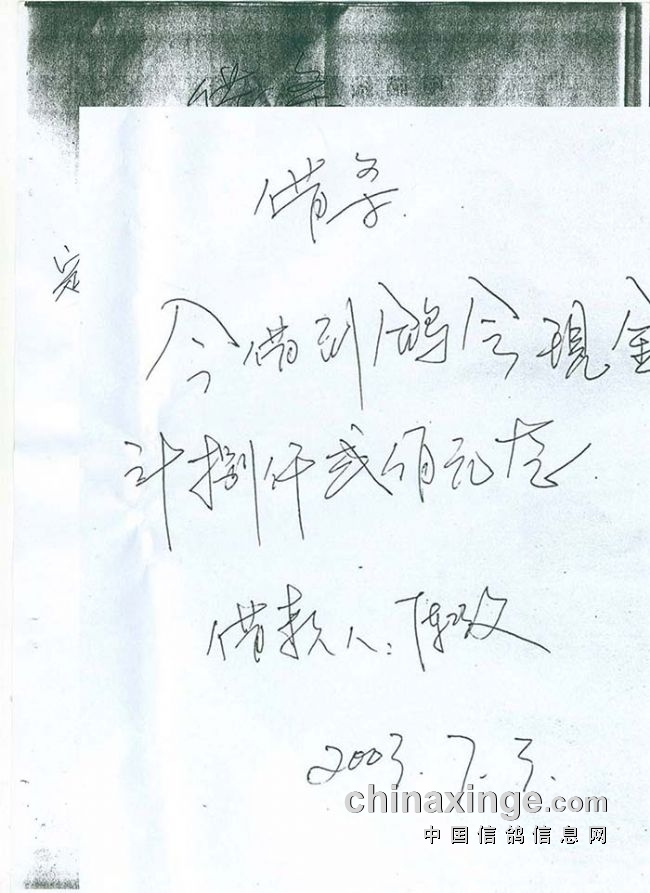 借条
定
借条
今借到鸽会现金
计捌仟贰佰元整
借款人:陈
2003.7.3.
chinaxinge.com
中国信鸽信息网